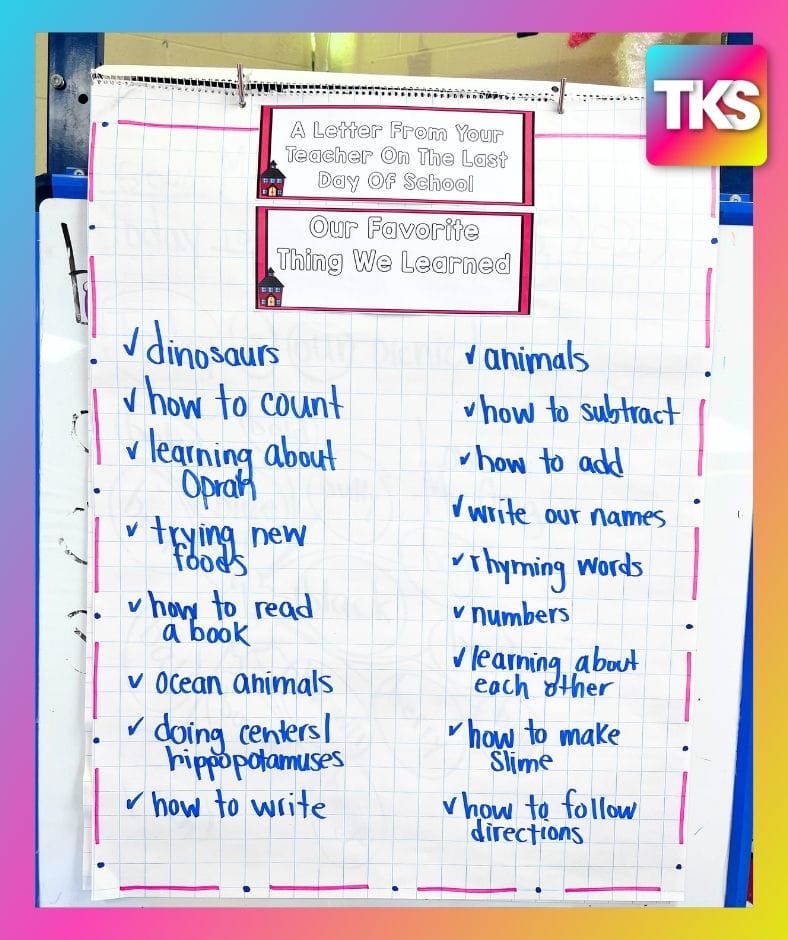 TKS
A Letter From Your
Teacher On The Last
Day Of School
Our Favorite
Thing We Learned
✓ dinosaurs
✓ how to count
✓ learning about
Oprah
✓ trying new
foods
✓ how to read
a book
✓ ocean animals
✓ doing centers/
hippopotamuses
✓ how to write
✓ animals
✓ how to subtract
✓ how to add
✓ write our names
✓ rhyming words
✓ numbers
✓ learning about
each other
✓ how to make
slime
✓ how to follow
directions